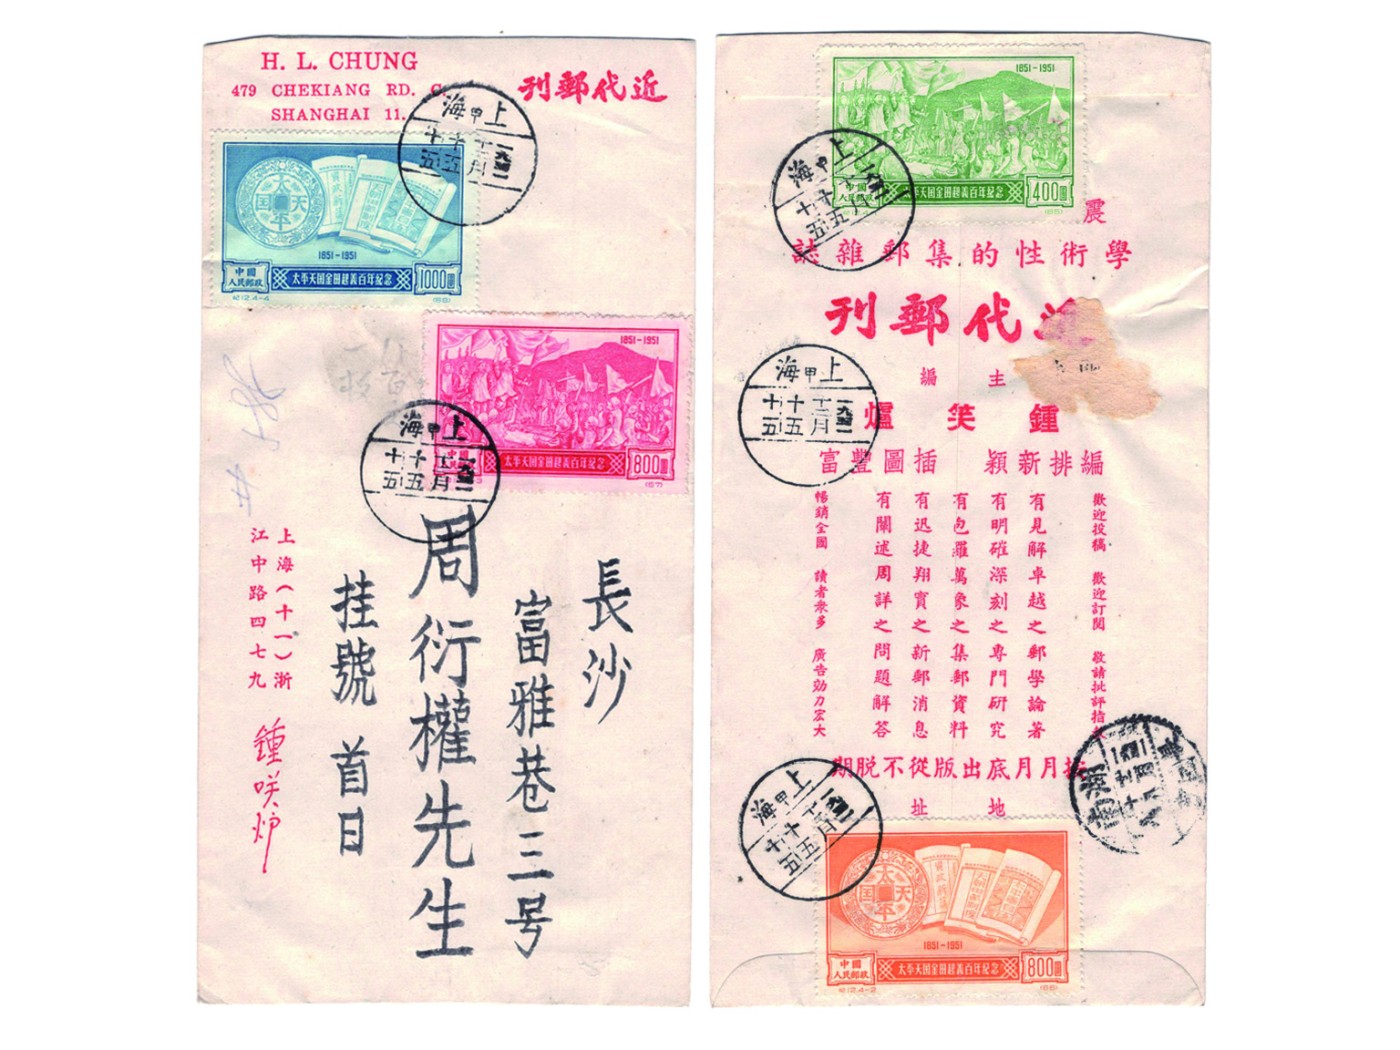 H. L. CHUNG
479 CHEKIANG RD. C.
SHANGHAI 11.
近代郵刊
上海
甲
太平天国
1851-1951
中國人民郵政
太平天国金田起義百年紀念
1000圓
紀12.4-4
(68)
1851-1951
太平天国金田起義百年紀念
800圓
(67)
上海
甲
長沙
富雅巷三号
周衍權先生
挂號 首日
上海（十一）浙
江中路四七九
鍾咲炉
1851-1951
中國人民郵政
太平天国金田起義百年紀念
400圓
上海
甲
震
學術性的集郵雜誌
代郵刊
主編
鍾笑爐
編排新穎 插圖豐富
歡迎投稿 歡迎訂閱 敬請批評指
有見解卓越之郵學論著
有明確深刻之專門研究
有包羅萬象之集郵資料
有迅捷翔實之新郵消息
有闡述周詳之問題解答
暢銷全國 讀者衆多 廣告効力宏大
月月底出版從不脫期
地址
上海
甲
上海
甲
湖南
太平天国
1851-1951
中國人民郵政
太平天国金田起義百年紀念
800圓
紀12.4-2
(66)